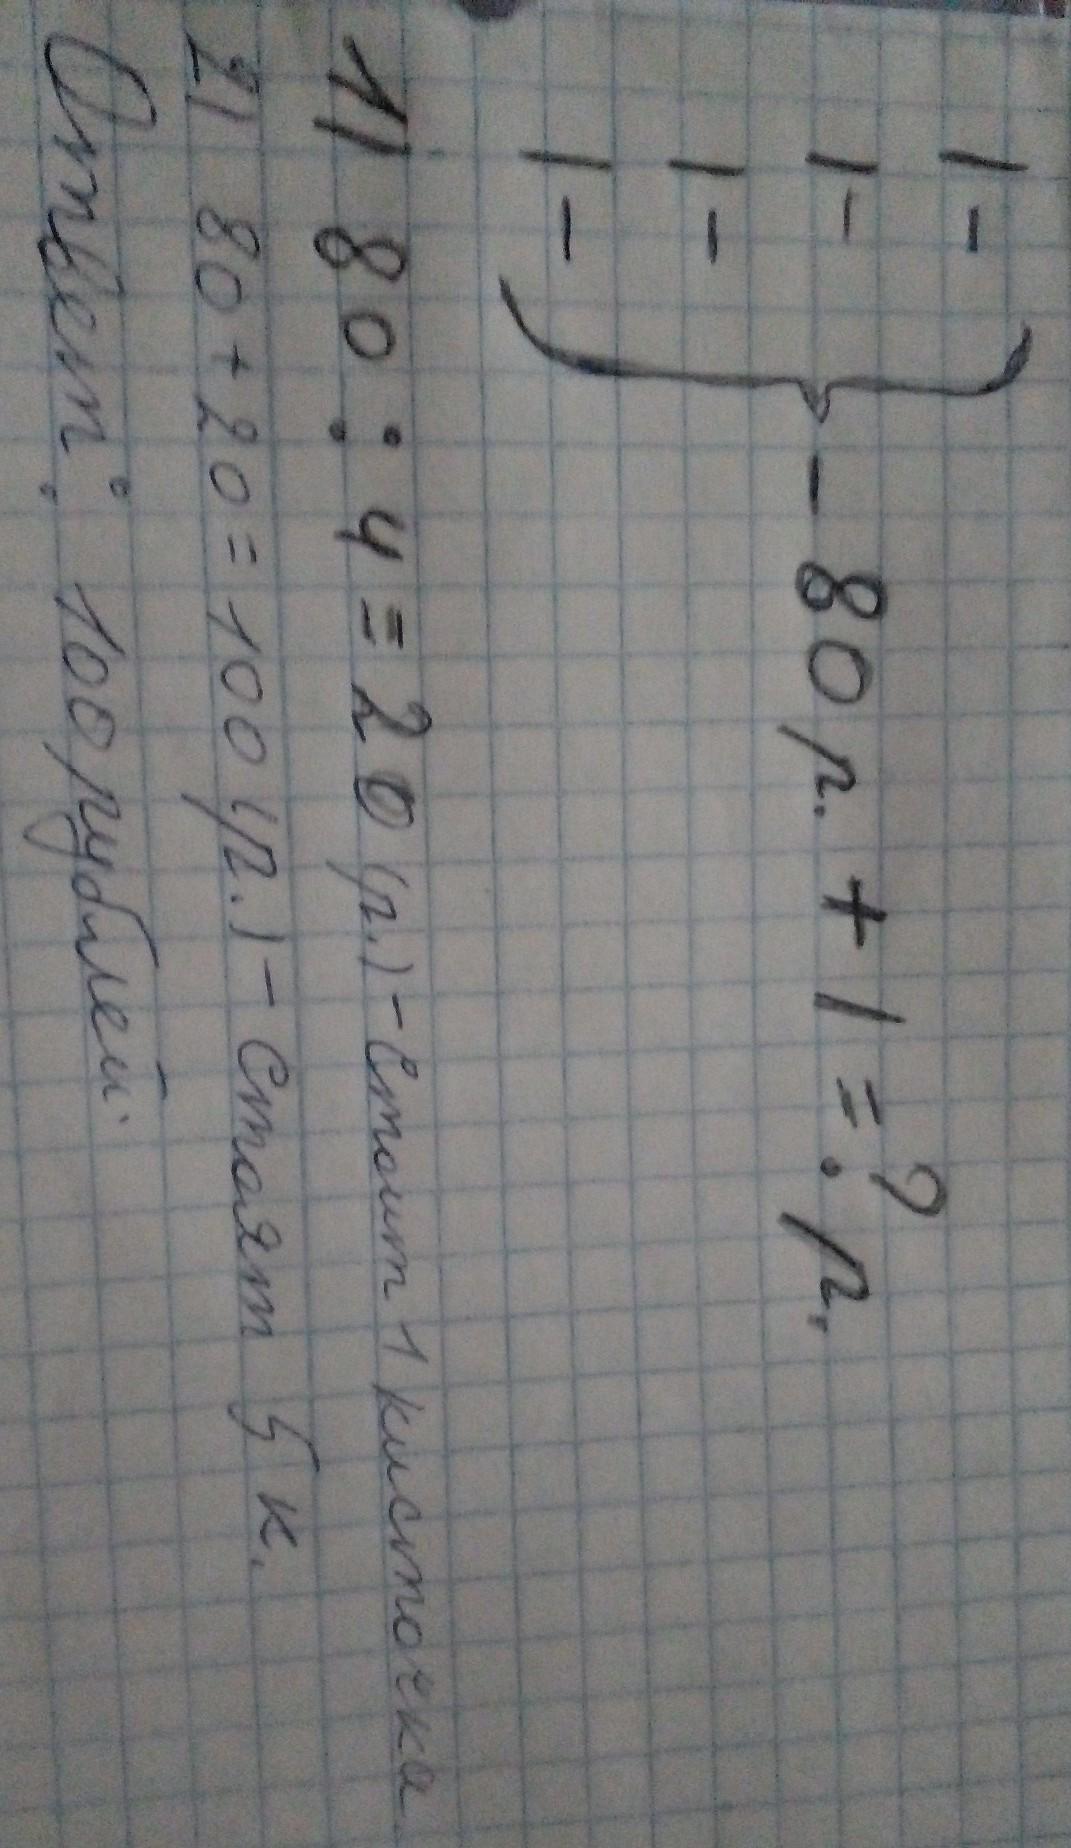 1 -
1 - - 80 р. + 1 = ? р.
1 -
1 -
1) 80 : 4 = 20 (р.) - стоит 1 кисточка
2) 80 + 20 = 100 (р.) - стоят 5 к.
Ответ: 100 рублей.